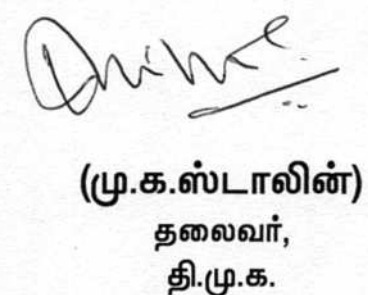 (மு.க.ஸ்டாலின்)
தலைவர்,
தி.மு.க.